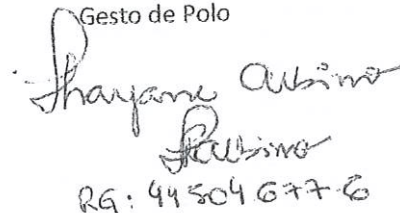 Gesto de Polo
Thayane Albino
TAlbino
RG: 44 504 677-6